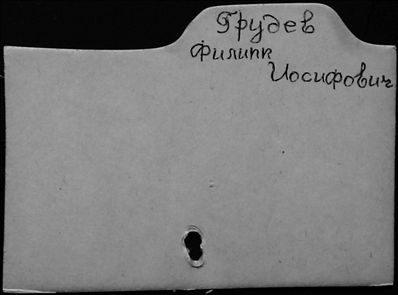 Грудев
Филипп
Иосифович